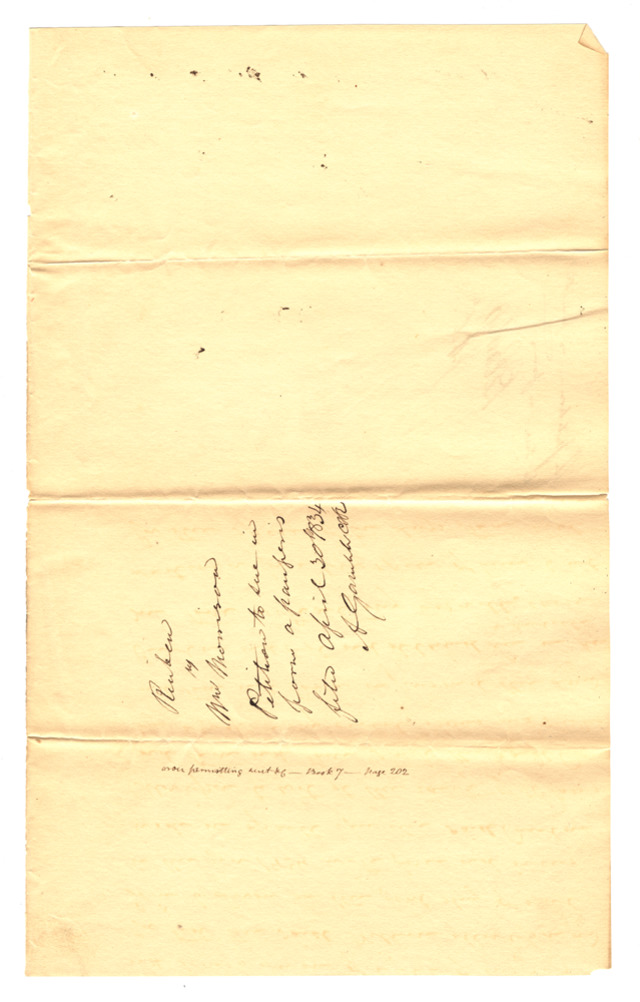 Reuben
vs
Wm Morrison
Petition to sue in
form a pauperis
filed April 30 1834
A Gamble Clk
order permitting suit &c — Book 7 — Page 202